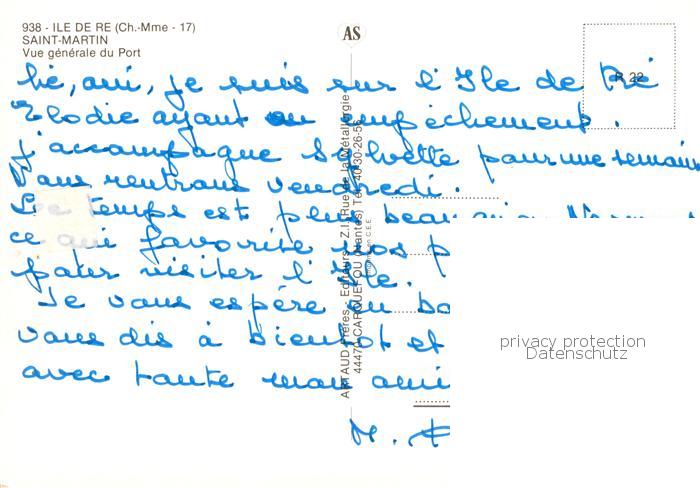 938 - ILE DE RE (Ch.-Mme - 17)
SAINT-MARTIN
Vue générale du Port
AS
R 22
hé, oui, je suis sur l'Ile de Ré
Elodie ayant eu empêchement.
j'accompagne Sylvette pour une semain
Nous rentrons vendredi.
Le temps est plus beau
ce qui favorise nos p
pour visiter l'Ile.
Je vous espère en bo
vous dis à bientot et
avec toute mon ami
M.
ARTAUD Frères - Editeurs - Z.I. Rue de la Métallurgie
44470 CARQUEFOU (Nantes) Tél. 40-30-26-56
privacy protection
Datenschutz